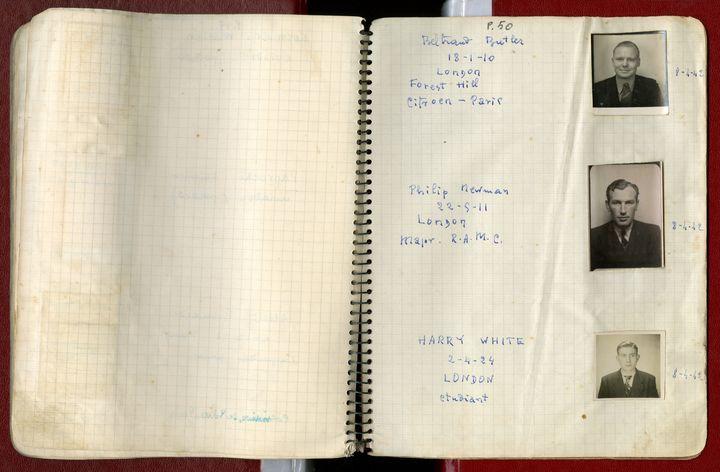 P.50
Beltrand Butler
18-1-10
London
Forest Hill
Citroen - Paris
8-4-42
Philip Newman
22-5-11
London
Major. R.A.M.C.
8-4-42
HARRY WHITE
2-4-24
LONDON
etudiant
8-4-42